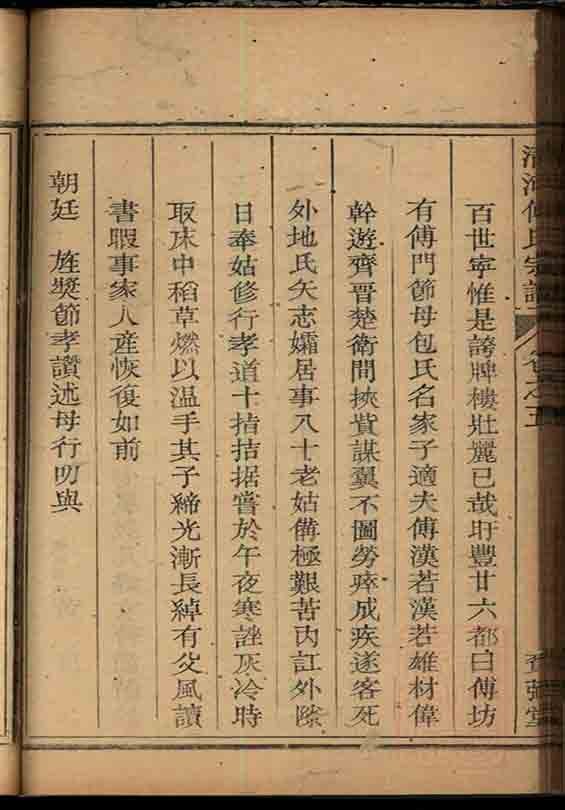 清河傅氏宗譜 卷之五
百世寧惟是誇牌樓壯麗已哉旴豐廿六都曰傅坊
有傅門節母包氏名家子適夫傅漢若漢若雄材偉
幹遊齊晋楚衛間挾貲謀翼不圖勞瘁成疾遂客死
外地氏矢志孀居事八十老姑備極艱苦内訌外隙
日奉姑修行孝道十指拮据嘗於午夜寒詿灰冷時
取床中稻草燃以温手其子締光漸長綽有父風讀
書暇事家人産恢復如前
朝廷 旌獎節孝讚述母行叨與